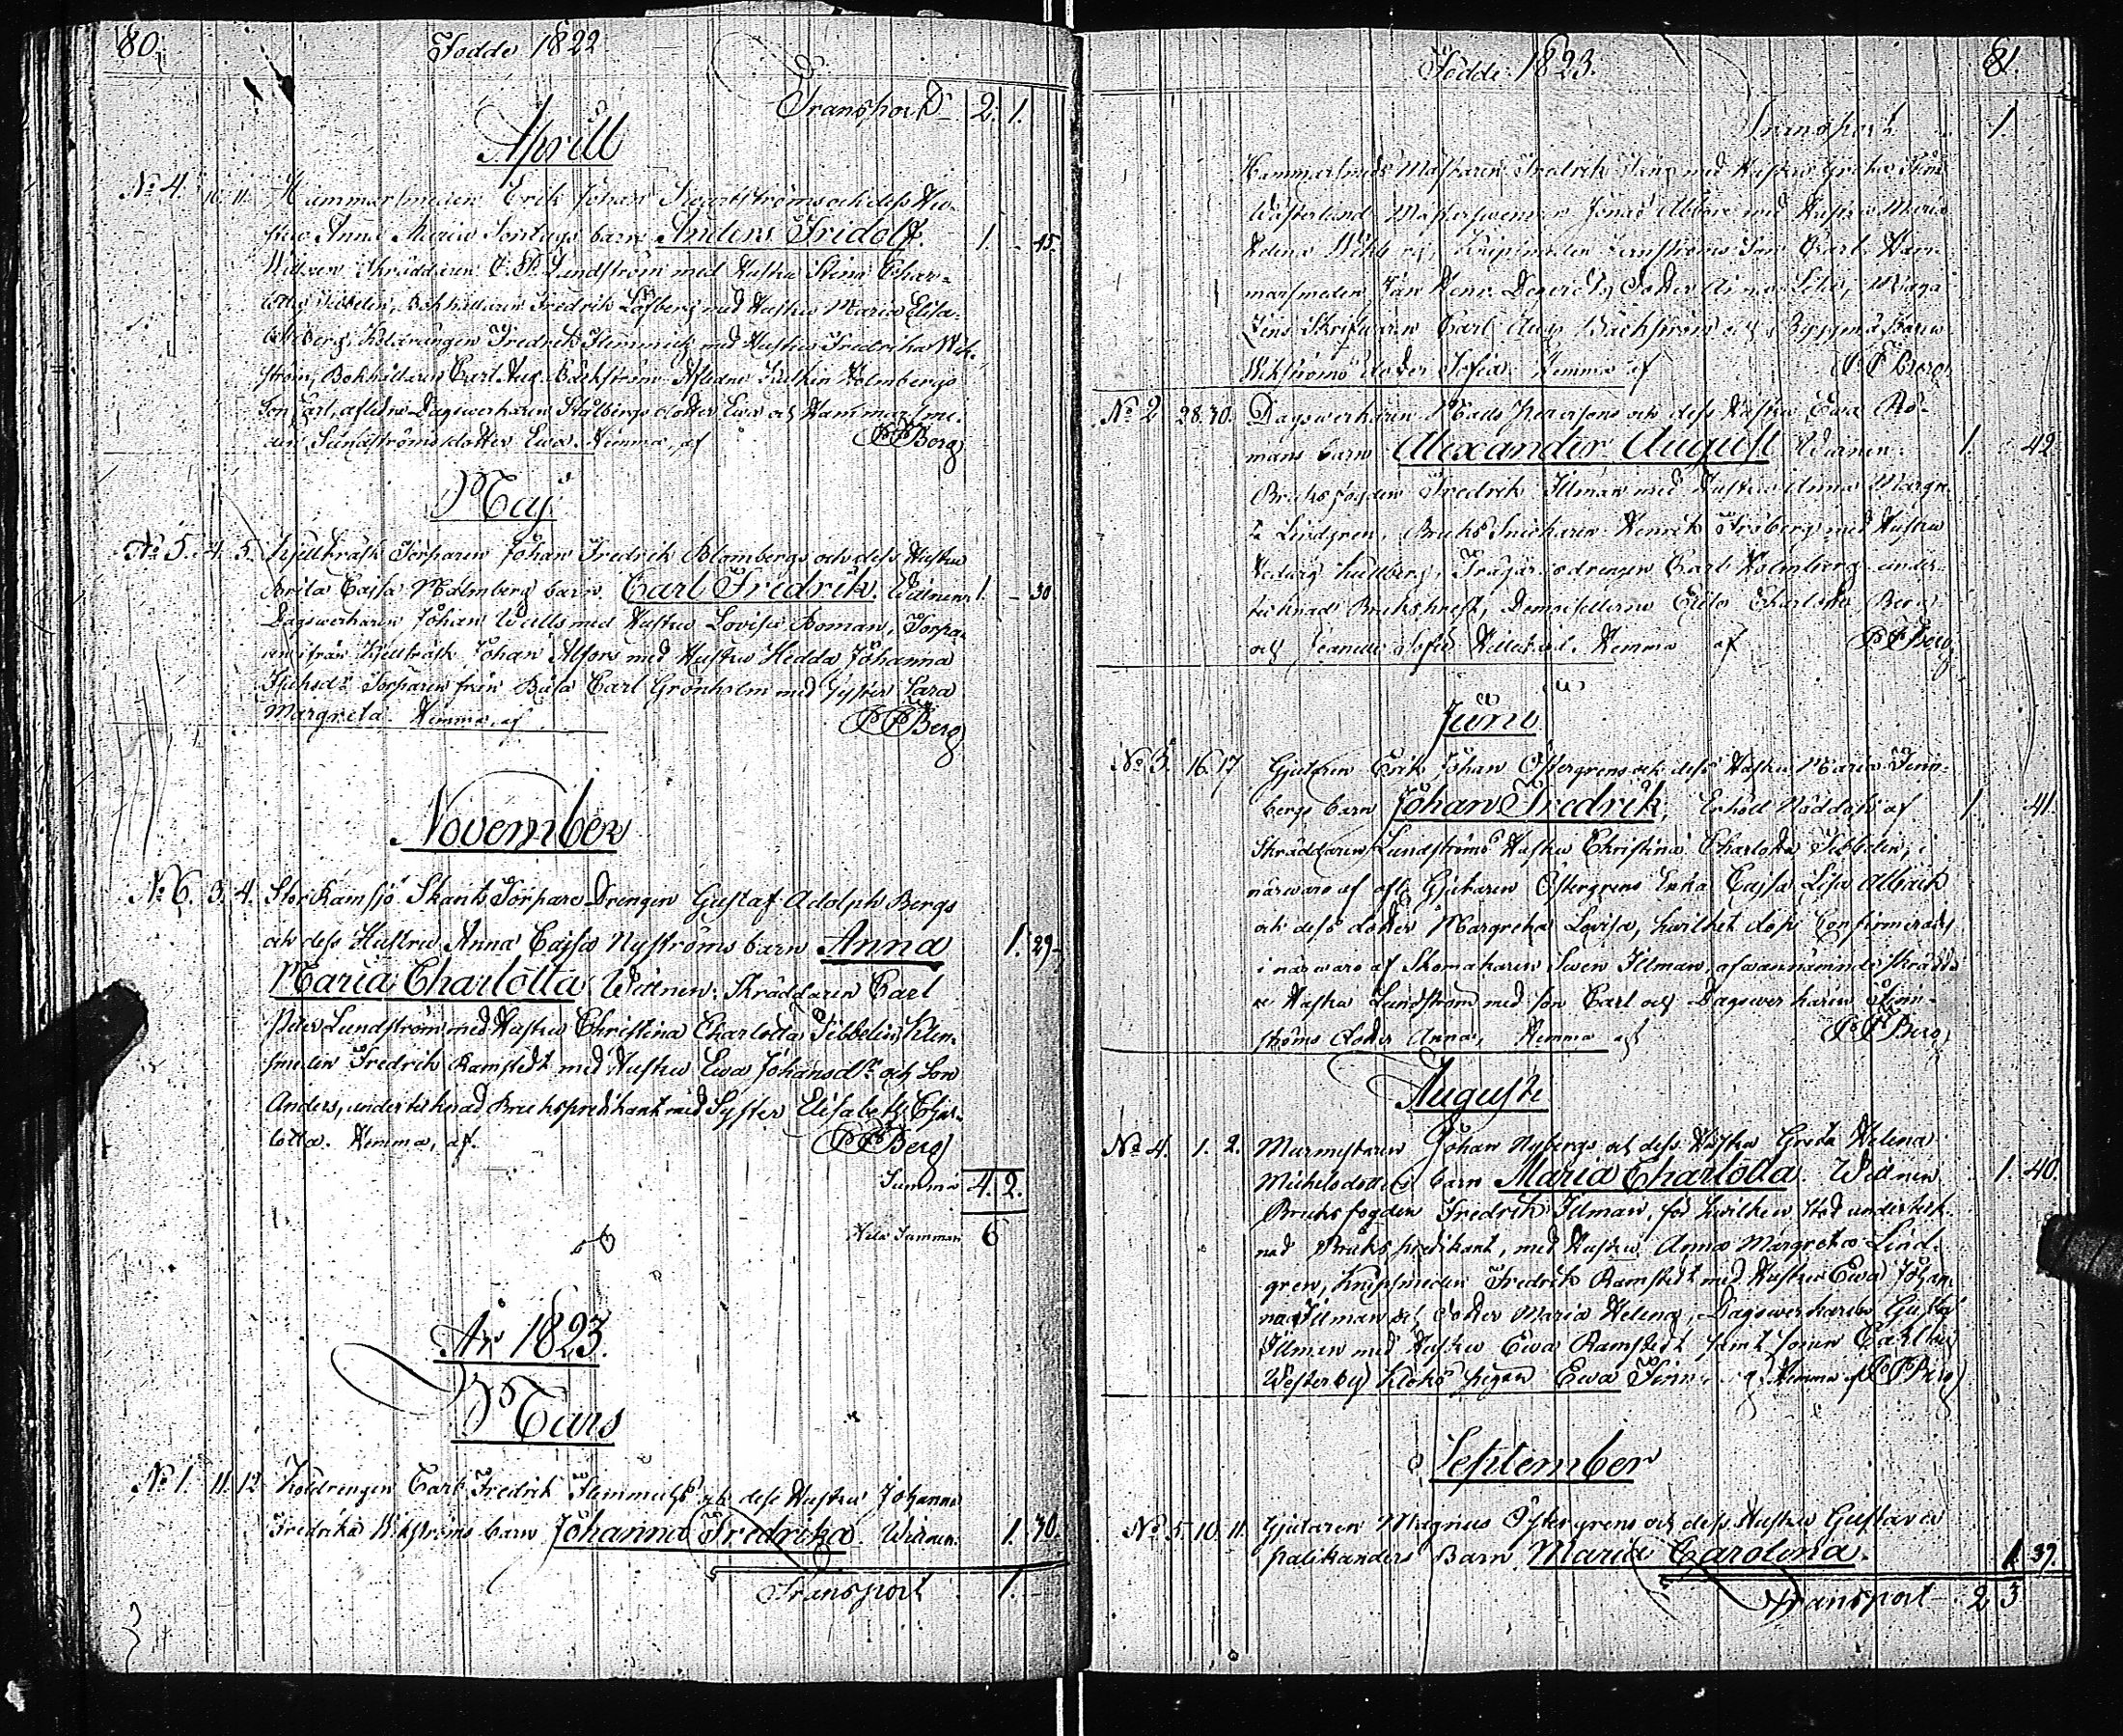 80.
Födde 1822
Transport 2. 1.
Aprill
No 4. 10. 11. Hammarsmeden Erik Johan Swartströms och dess Hu-
stru Anna Maria Sontags barn Anders Fridolf. 1. 45.
Witnen Skräddaren C. P. Lundström med Hustru Stina Char-
lotta Tibbelin, Bokhållaren Fredrik Löfberg med Hustru Maria Elisa-
Berg, Koldrängen Fredrik Flemmich med Hustru Fredrika Wik-
ström, Bokhållaren Carl Aug. Bäckström Afledne Holmbergs
Son Carl, afledne Dagswerkaren Stålbergs dotter Ewa och Hammarsme-
den Sundströms dotter Ewa. Hemma, af P P Berg
Maj
No 5. 4. 5. Kjellträsk Torparen Johan Fredrik Blombergs och dess Hustru
Brita Cajsa Malmberg barn Carl Fredrik. Witnen 1. 30
Dagswerkaren Johan Wells med Hustru Lovisa Boman, Torpa-
ren ifrån Kjellträsk Johan Alfors med Hustru Hedda Johanna
Torparen från Båsa Carl Grönholm med Syster Sara
Margreta. Hemma, af P P Berg
November
No 6. 3. 4. Stor Ramsjö Skants Torpare Drengen Gustaf Adolph Bergs
och dess Hustru Anna Cajsa Nyströms barn Anna 1. 29
Maria Charlotta. Witnen. Skräddaren Carl
Peter Lundström med Hustru Christina Charlotta Tibbelin, Klen-
smeden Fredrik Ramstedt med Hustru Ewa Johansdr och Son
Anders, undertecknad Brukspredikant med Syster Elisabeth Char-
lotta. Hemma, af P P Berg
Summa 4. 2.
Hela Summan 6
År 1823.
Mars
No 1. 11. 12 Koldrengen Carl Fredrik Flemmichs och dess Hustru Johanna
Fredrika Wikströms barn Johanna Fredrika. Witnen. 1. 30.
Transport 1. -
Födde 1823.
81.
Transport 1.
Hammarsmeds Mästaren Fredrik med Hustru Greta
Mästerswennen Jonas med Hustru Maria
Son Carl, Ham-
marsmeden Jan Henr. Dotter Lisa,
Skrifwaren Carl Aug. Bäckström och
Wikströms dotter Sofia. Hemma af P P Berg
No 2. 28. 30. Dagswerkaren Mats Petersons och dess Hustru Ewa Ro-
mans barn Alexander August. Witnen: 1. 42
Bruksfogden Fredrik Ilman med Hustru Anna Margre-
ta Lindgren, Bruks Snickaren Henrik Fröberg med Hustru
Hedwig Kullberg, Carl Holmberg under-
tecknad Brukspred., Demoisellerne Charlotta Berg
och Jeanette Sofia. Hemma af P P Berg
Juni
No 3. 16. 17 Gjutaren Erik Johan Östergrens och dess Hustru Maria Tenn-
bergs barn Johan Fredrik, Erhöll Nöddop af 1. 41.
Skräddaren Lundströms Hustru Christina Charlotta Tibbelin, i
närwaro af afl. Gjutaren Östergrens Enka Cajsa Lisa Alback
och dess dotter Margreta Lovisa, hwilket dop Confirmerades
i närwaro af Skomakaren Swen Ilman, ofwannämnde Skrädda-
re Hustru Lundström med son Carl och Dagswerkaren
ströms dotter Anna, Hemma af P P Berg
Augusti
No 4. 1. 2. Murmästaren Johan Nybergs och dess Hustru Greta Helena
Michelsdotters barn Maria Charlotta. Witnen 1. 40.
Bruksfogden Fredrik Ilman, för hwilken stod undertek-
nad Brukspredikant, med Hustru Anna Margreta Lind-
gren, Knipsmeden Fredrik Ramstedt med Hustru Ewa Johan-
na Ilman och dotter Maria Helena, Dagswerkaren Gustaf
Ilman med Hustru Ewa Ramstedt samt sonen Carl och
Westerby Kloks pigan Ewa Hemma af P P Berg
September
No 5. 10. 11. Gjutaren Magnus Östergrens och dess Hustru Gustava
Palikanders Barn Maria Carolina. 1. 39.
Transport 2 3